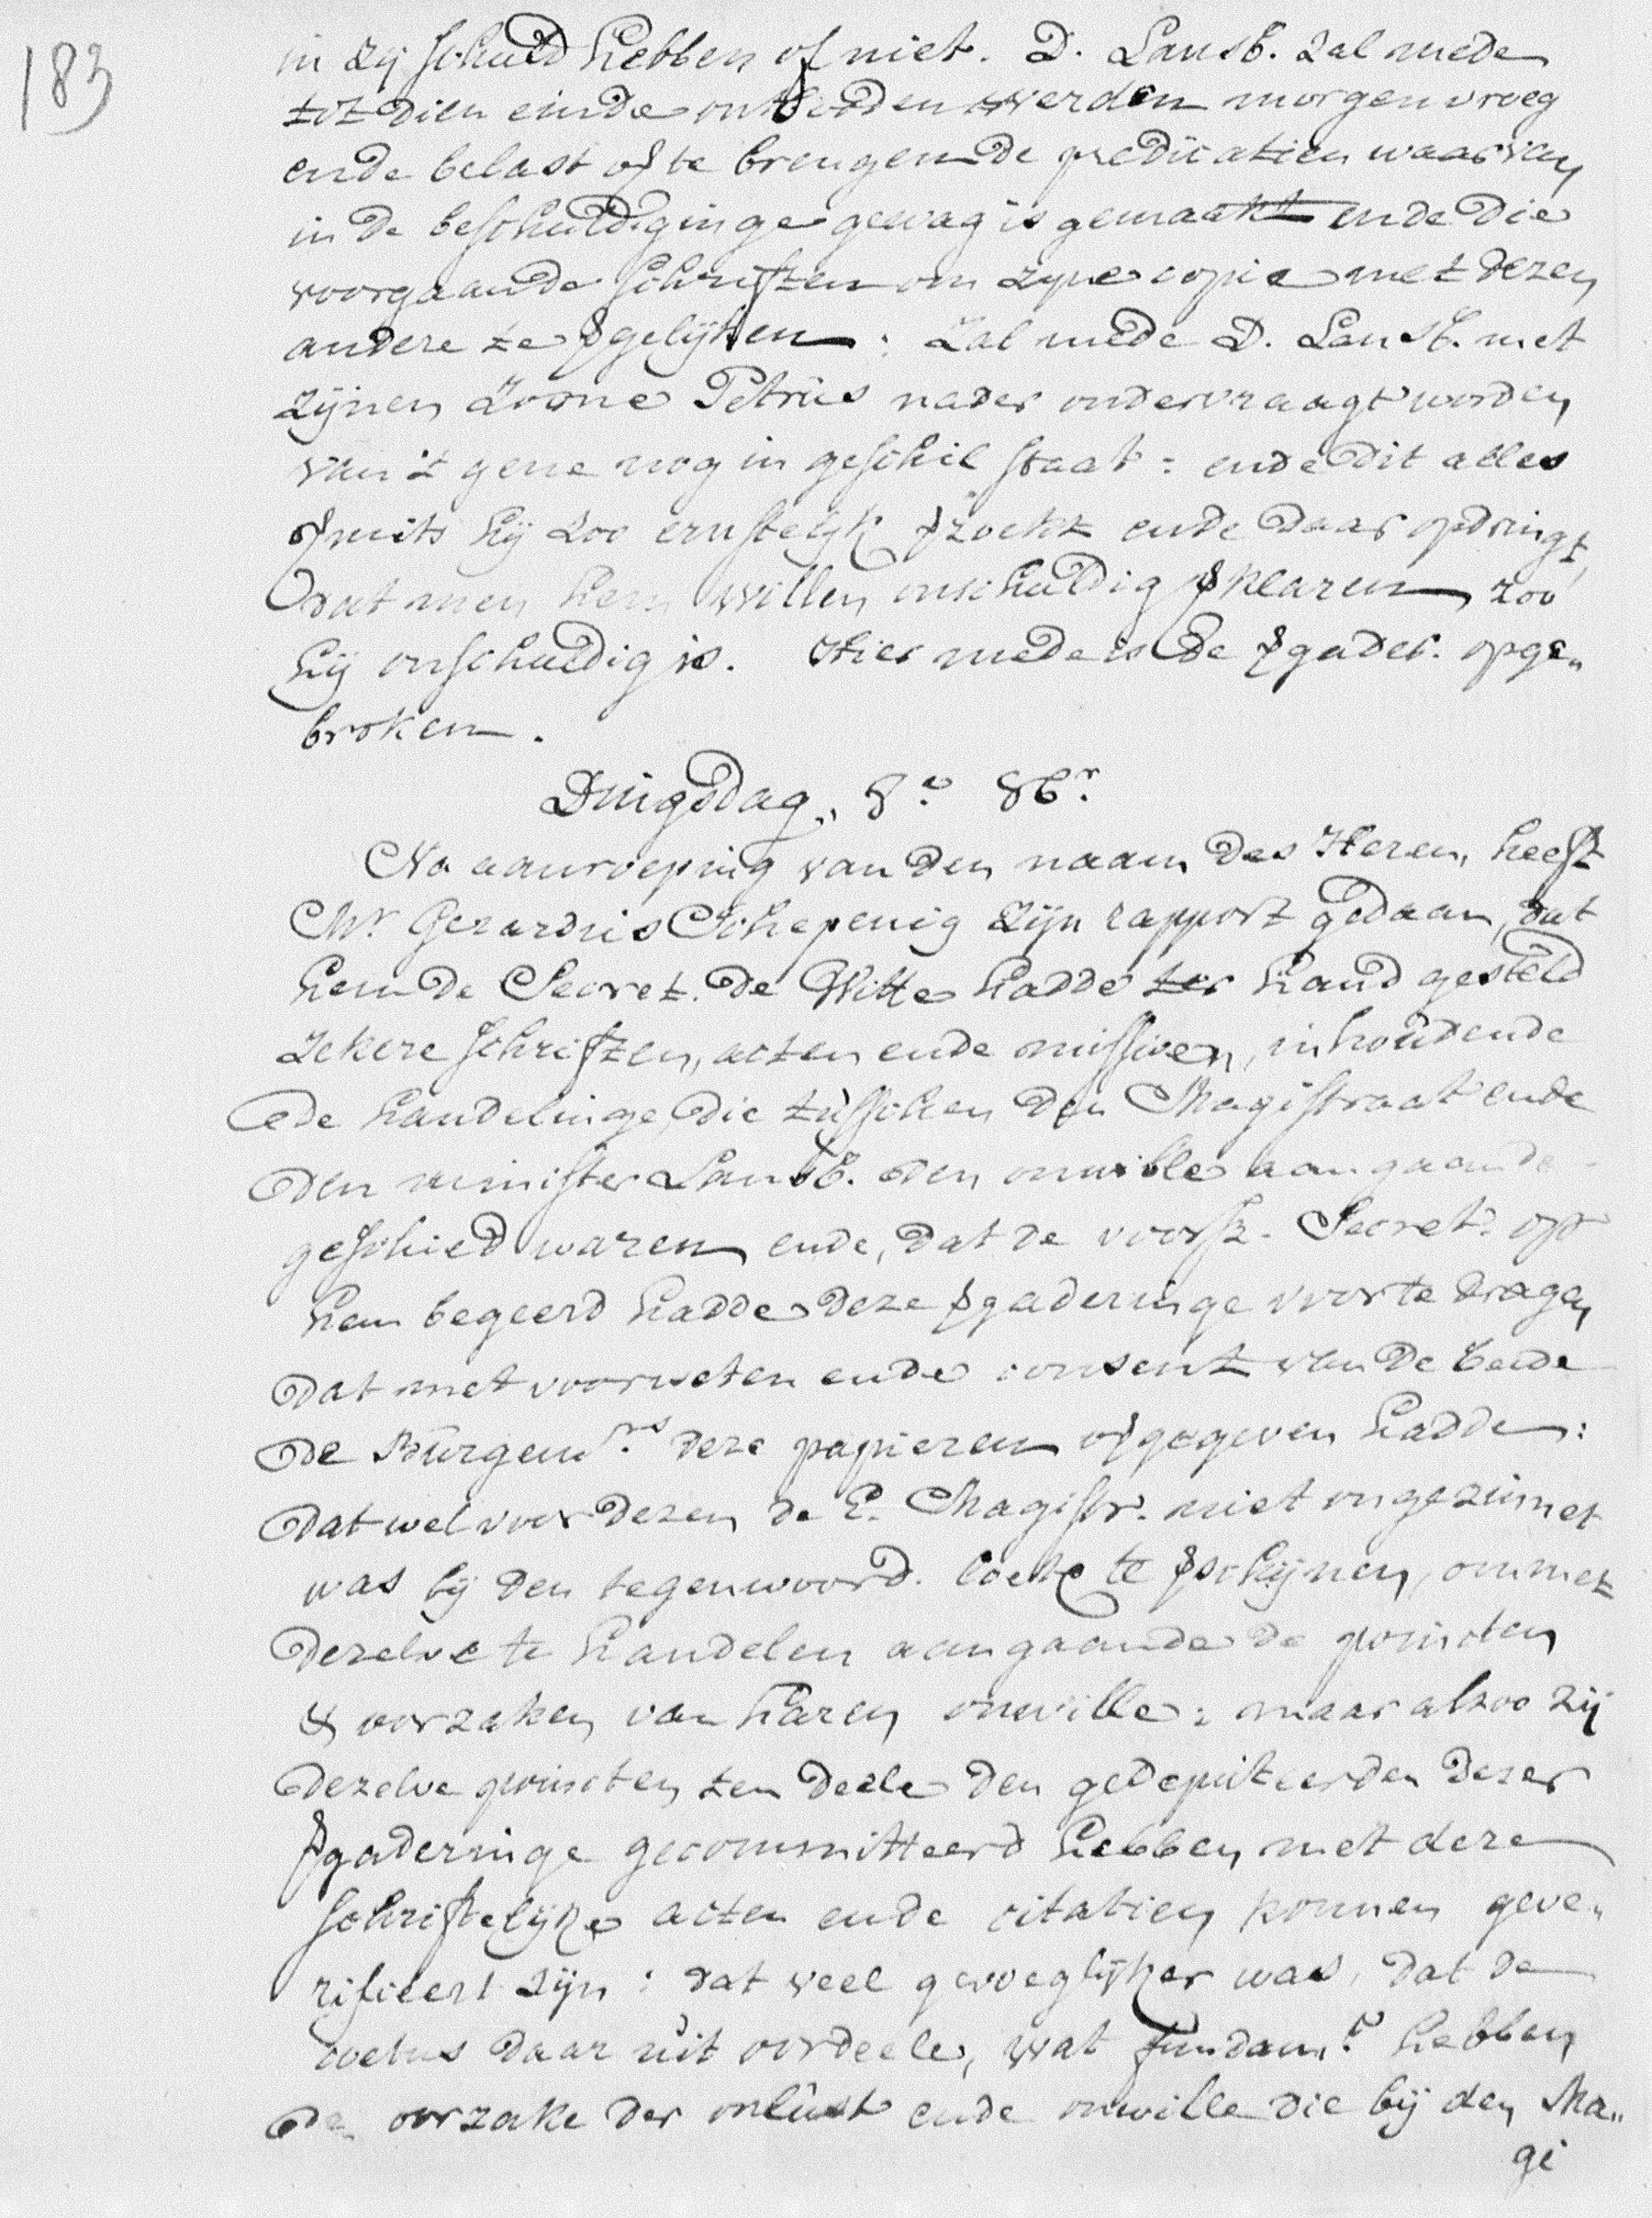 183
in zij schuld hebben of niet. D. Lansb. zal mede
tot dien einde ontboden werden morgen vroeg
ende belast over te brengen de predicatien waar van
in de beschuldiginge gewag is gemaakt ende die
voorgaande schriften om zijne copie met dezen
andere te vergelijken: Zal mede D. Lansb. met
zijnen Zoone Petrus nader ondervraagt worden
van 't gene nog in geschil staat: ende dit alles
vermits hij zoo ernstelijk verzoekt ende daar op dringt,
dat men hem willen onschuldig verklaren, zoo
hij onschuldig is. Hier mede is de vergader. opge„
broken.
Dingsdag„ 8.e 8b.r
Na aanroeping van den naam des Heren, heeft
Mr. Gerardus Schepenig zijn rapport gedaan, dat
hem de Secret. de Witte hadde ter hand gesteld
zekere schriften, acten ende missiven, inhoudende
de handelinge, die tusschen den Magistraat ende
den minister Lansb. den onwille aangaande
geschied waren, ende, dat de voorsz. Secret. op
hem begeerd hadde deze vergaderinge voor te dragen
dat met voorweten ende consent van de beide
de Burgem.rs deze papieren overgegeven hadde:
dat wel voor dezen de E. Magistr. niet ongezint
was bij den tegenwoord. coetu te verschijnen, om met
dezelve te handelen aangaande de poincten
& oorzaken van haren onwille: maar alzoo zij
dezelve poincten ten deele den gedeputeerden dezer
vergaderinge gecommitteerd hebben, met deze
schriftelijke acten ende citatien konnen geve„
rifieert zijn: dat veel gevoeglijker was, dat de
coetus daar uit oordeele, wat fundam.t hebben
de oorzake der onlust ende onwille die bij den Ma„
gi